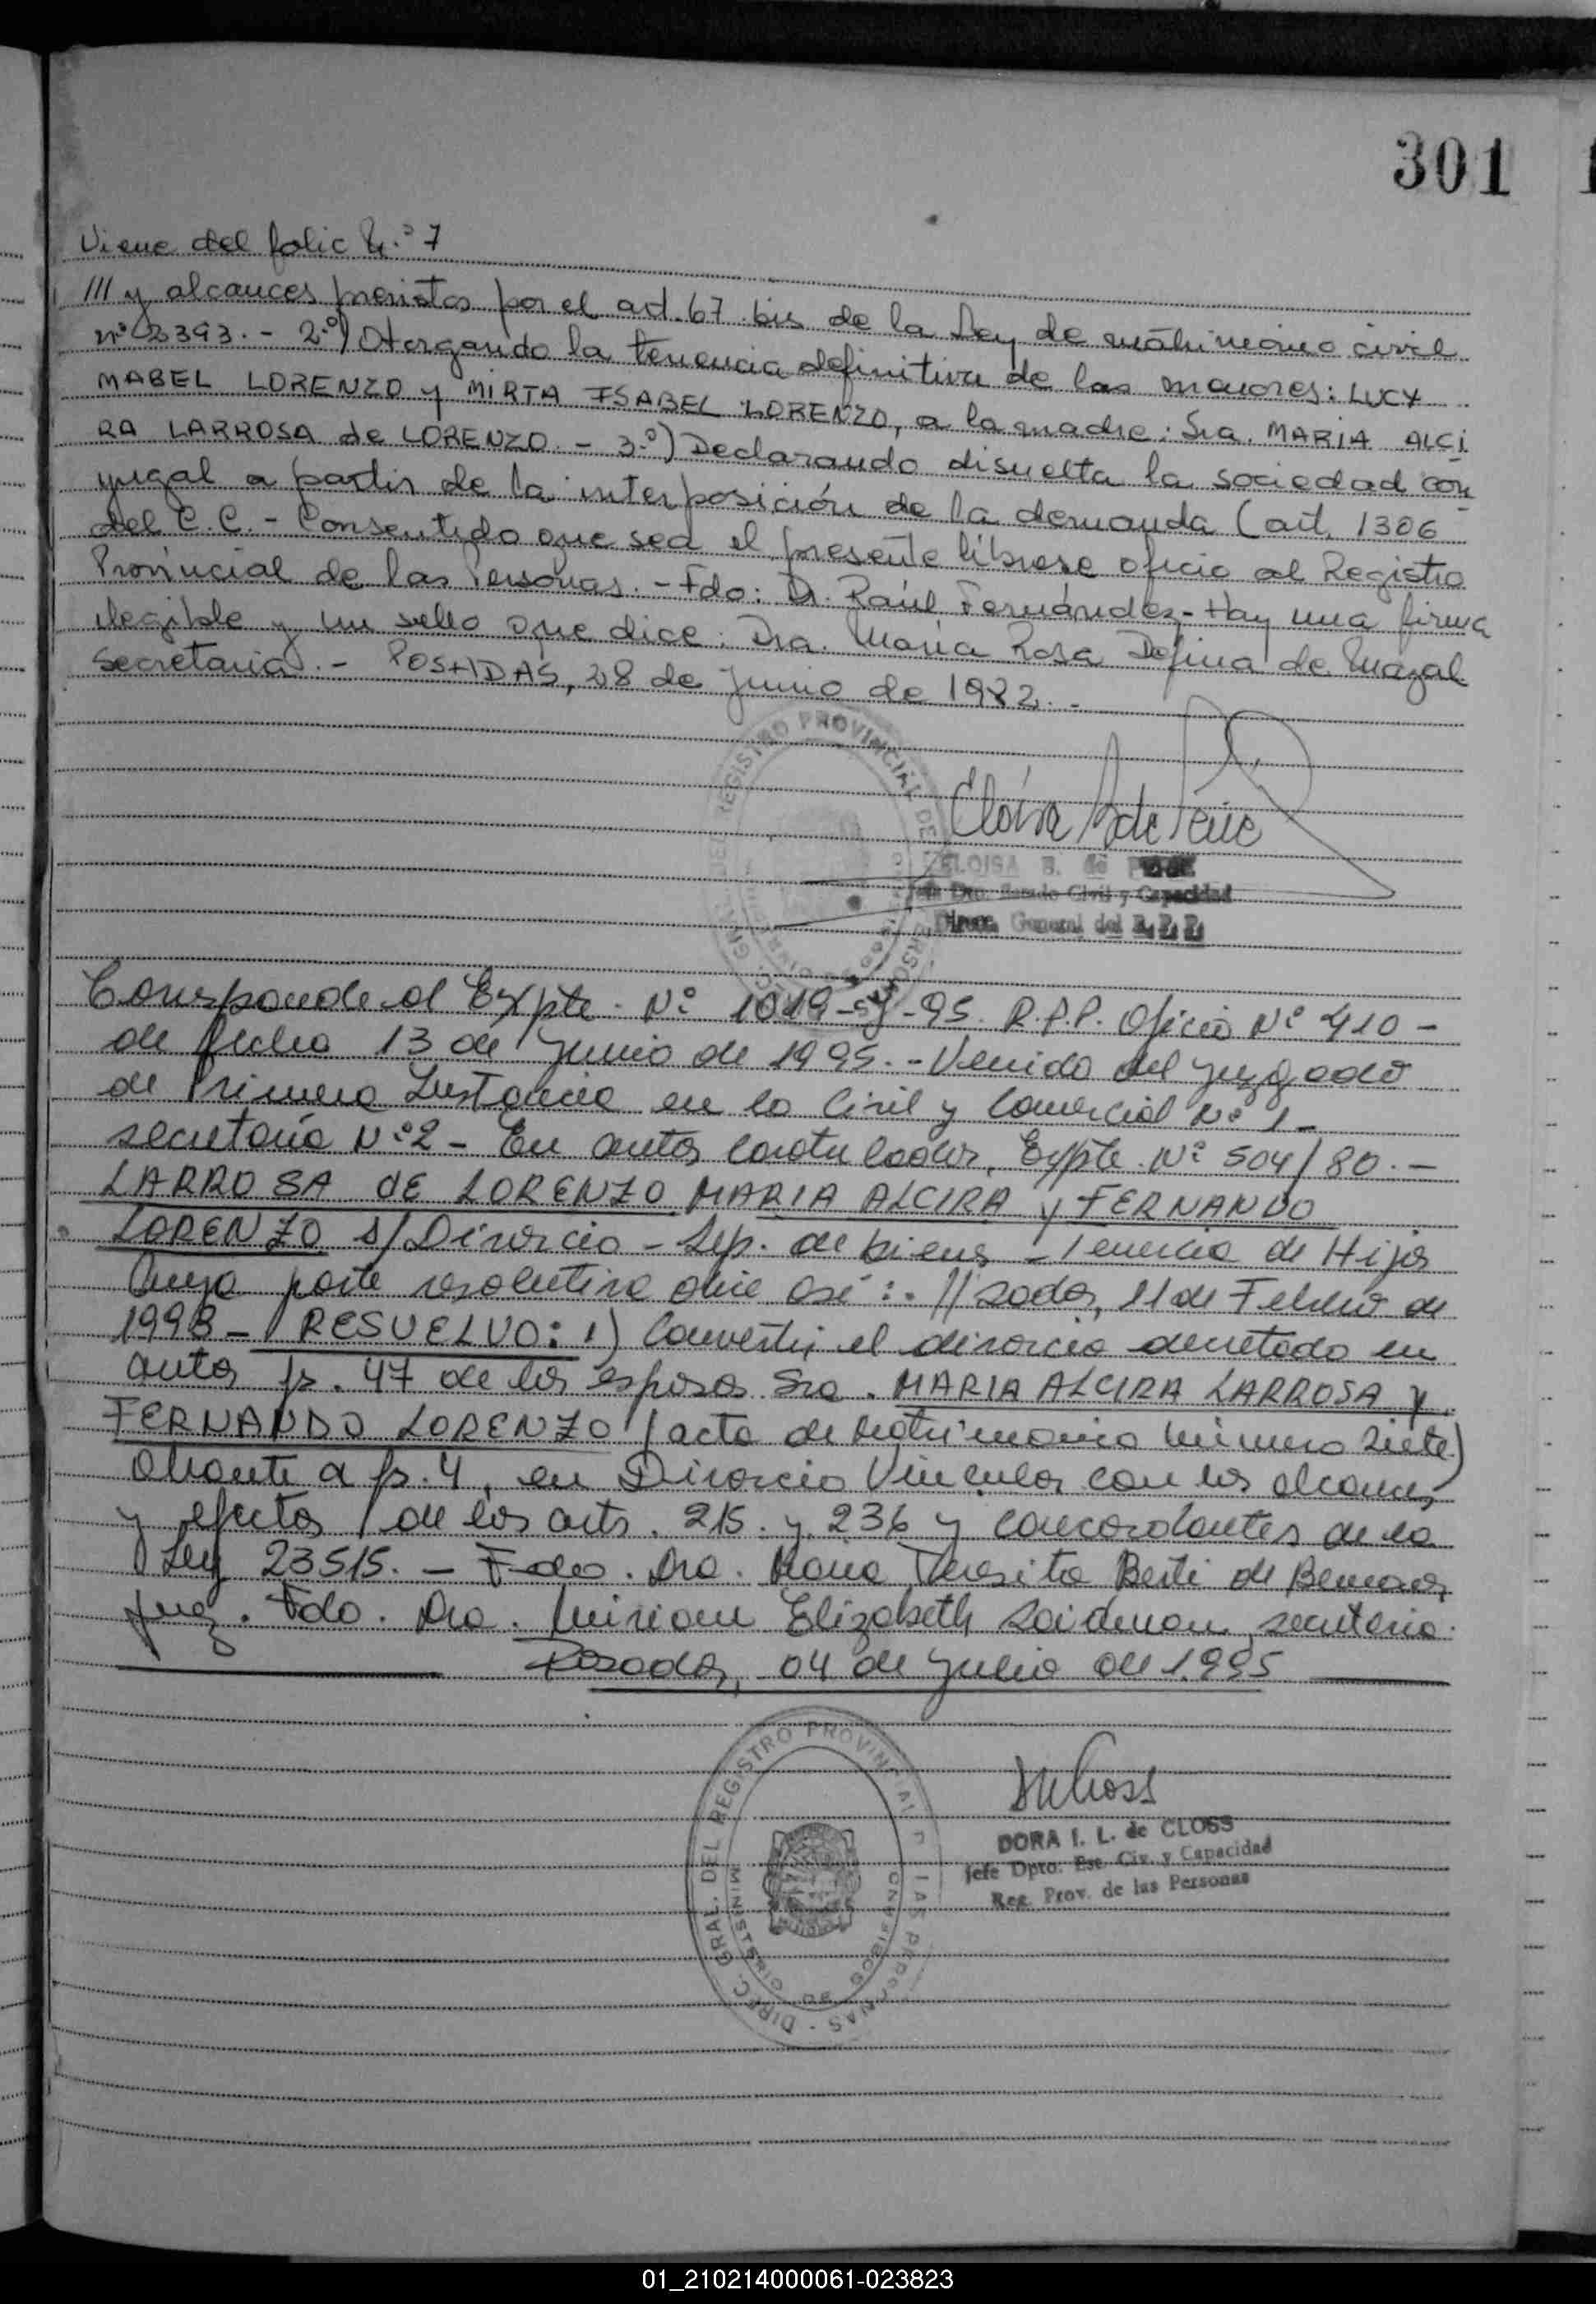 301
Viene del folio N.º 7
/// y alcances previstos por el art. 67 bis de la Ley de matrimonio civil
nº 2393.- 2.º) Otorgando la tenencia definitiva de las menores: LUCY
MABEL LORENZO y MIRTA ISABEL LORENZO, a la madre: Sra. MARIA ALCI
RA LARROSA de LORENZO.- 3.º) Declarando disuelta la sociedad con-
yugal a partir de la interposición de la demanda (art. 1306
del C.C.- Consentido que sea el presente líbrese oficio al Registro
Provincial de las Personas.- Fdo: Dr. Raúl Fernández- Hay una firma
ilegible y un sello que dice: Dra. María Rosa Defina de Mayal
Secretaria.- POSADAS, 28 de Junio de 1982.-
REGISTRO PROVINCIAL DE
ELOISA B. de
Jefe Dto. Estado Civil y Capacidad
Direcc. General del R. P. P.
Corresponde al Expte. Nº 1019-95. R.P.P. Oficio Nº 410-
de fecha 13 de Junio de 1995.- Venido del Juzgado
de Primera Instancia en lo Civil y Comercial Nº 1-
secretaría Nº 2- En autos caratulados, Expte. Nº 504/80.-
LARROSA dE LORENZO MARIA ALCIRA y FERNANDO
LORENZO s/Divorcio- Sep. de bienes- Tenencia de Hijos
Cuya parte resolutiva dice así:. //sadas, 11 de Febrero de
1993- RESUELVO: 1) Convertir el divorcio decretado en
autos fs. 47 de los esposos Sra. MARIA ALCIRA LARROSA y
FERNANDO LORENZO (acta de Matrimonio número siete)
obrante a fs. 4, en Divorcio Vincular con los alcances
y efectos de los arts. 215. y 236 y concordantes de la
Ley 23515.- Fdo. Dra. María Teresita Berti de
Juez. Fdo. Dra. Miriam Elizabeth Saidman, secretaria.
Posadas, 04 de Julio de 1995
DIREC. GRAL. DEL REGISTRO PROVINCIAL DE LAS PERSONAS
MINISTERIO DE
DORA I. L. de CLOSS
Jefe Dpto. Est. Civ. y Capacidad
Reg. Prov. de las Personas
01_210214000061-023823